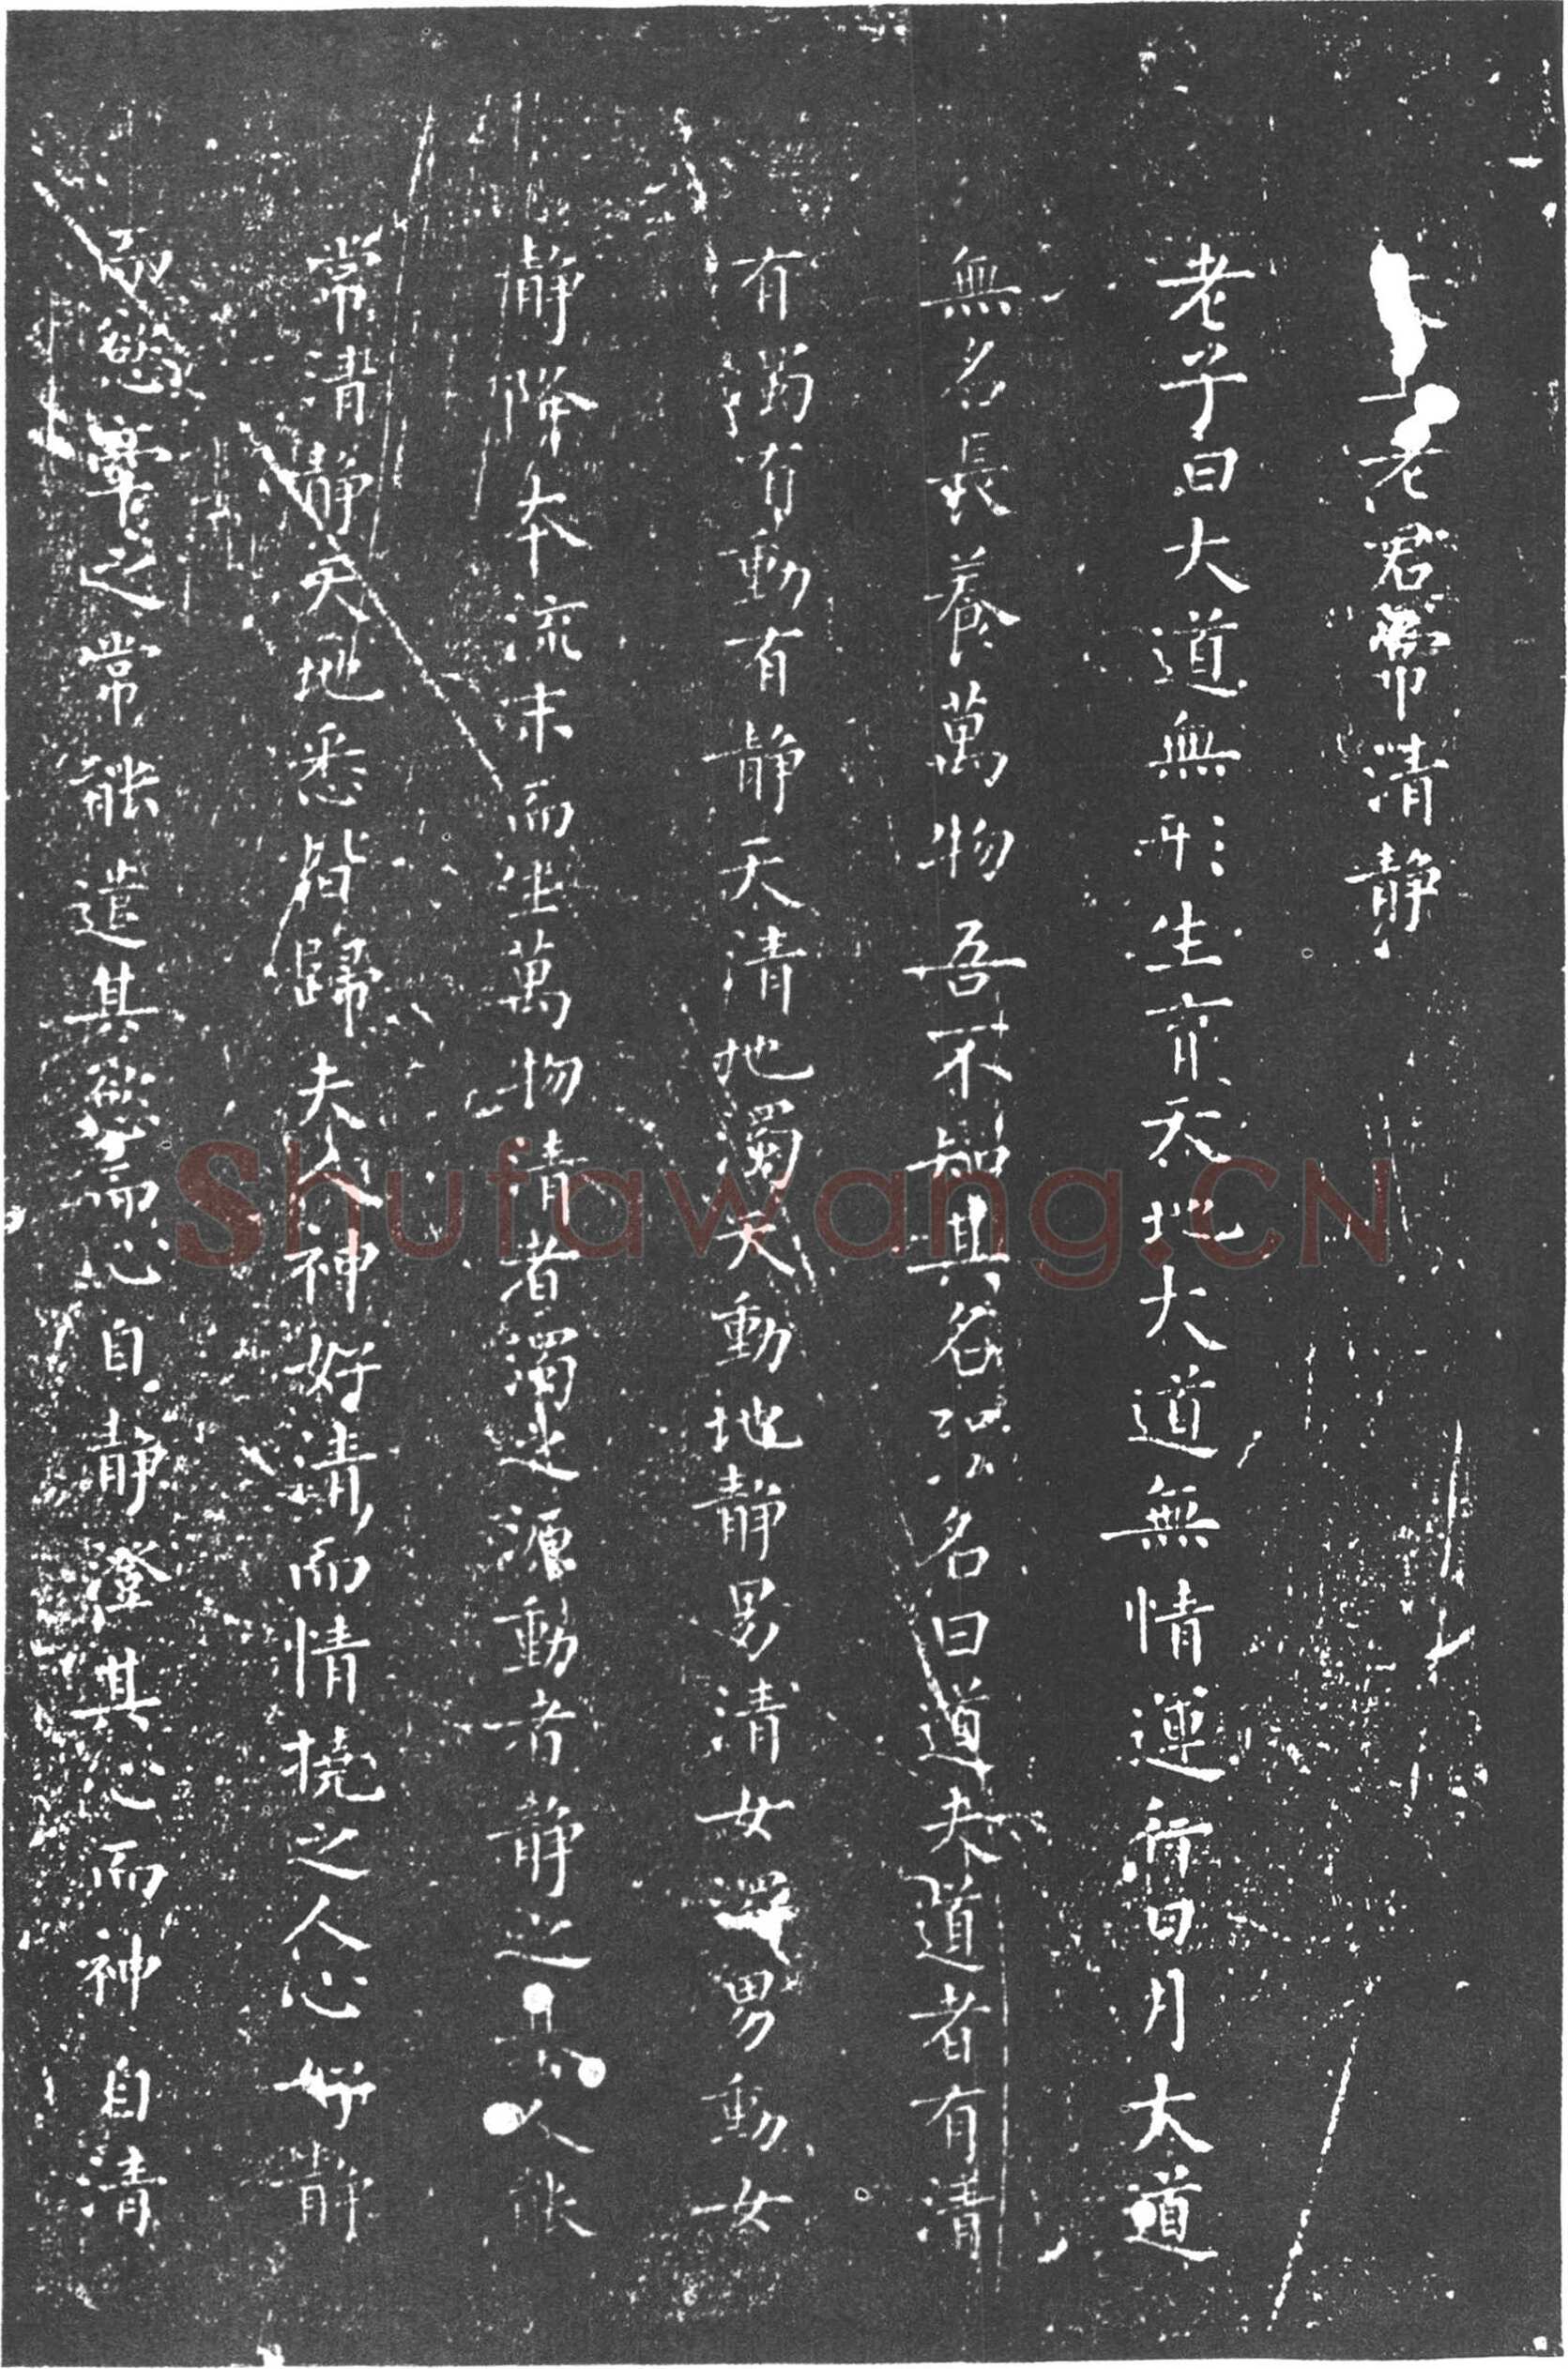 老君常清静
老子曰大道無形生育天地大道無情運行日月大道
無名長養萬物吾不知其名强名曰道夫道者有清
有濁有動有静天清地濁天動地静男清女濁男動女
静降本流末而生萬物清者濁之源動者静之基人能
常清静天地悉皆歸夫人神好清而情撓之人心好静
而慾牽之常能遣其慾而心自静澄其心而神自清
Shufawang.CN